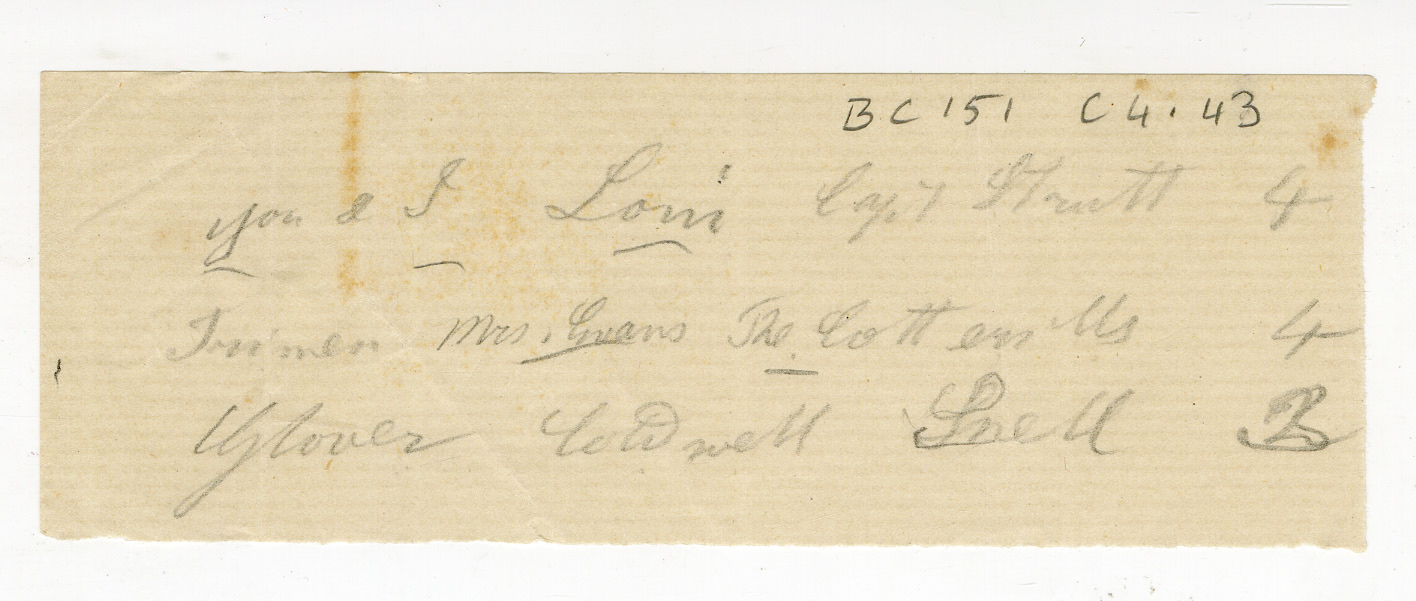 BC 151 C4.43
you & I Loui Capt Strutt 4
Trimen Mrs. Evans The Cotterills 4
Glover Coldwell Snell